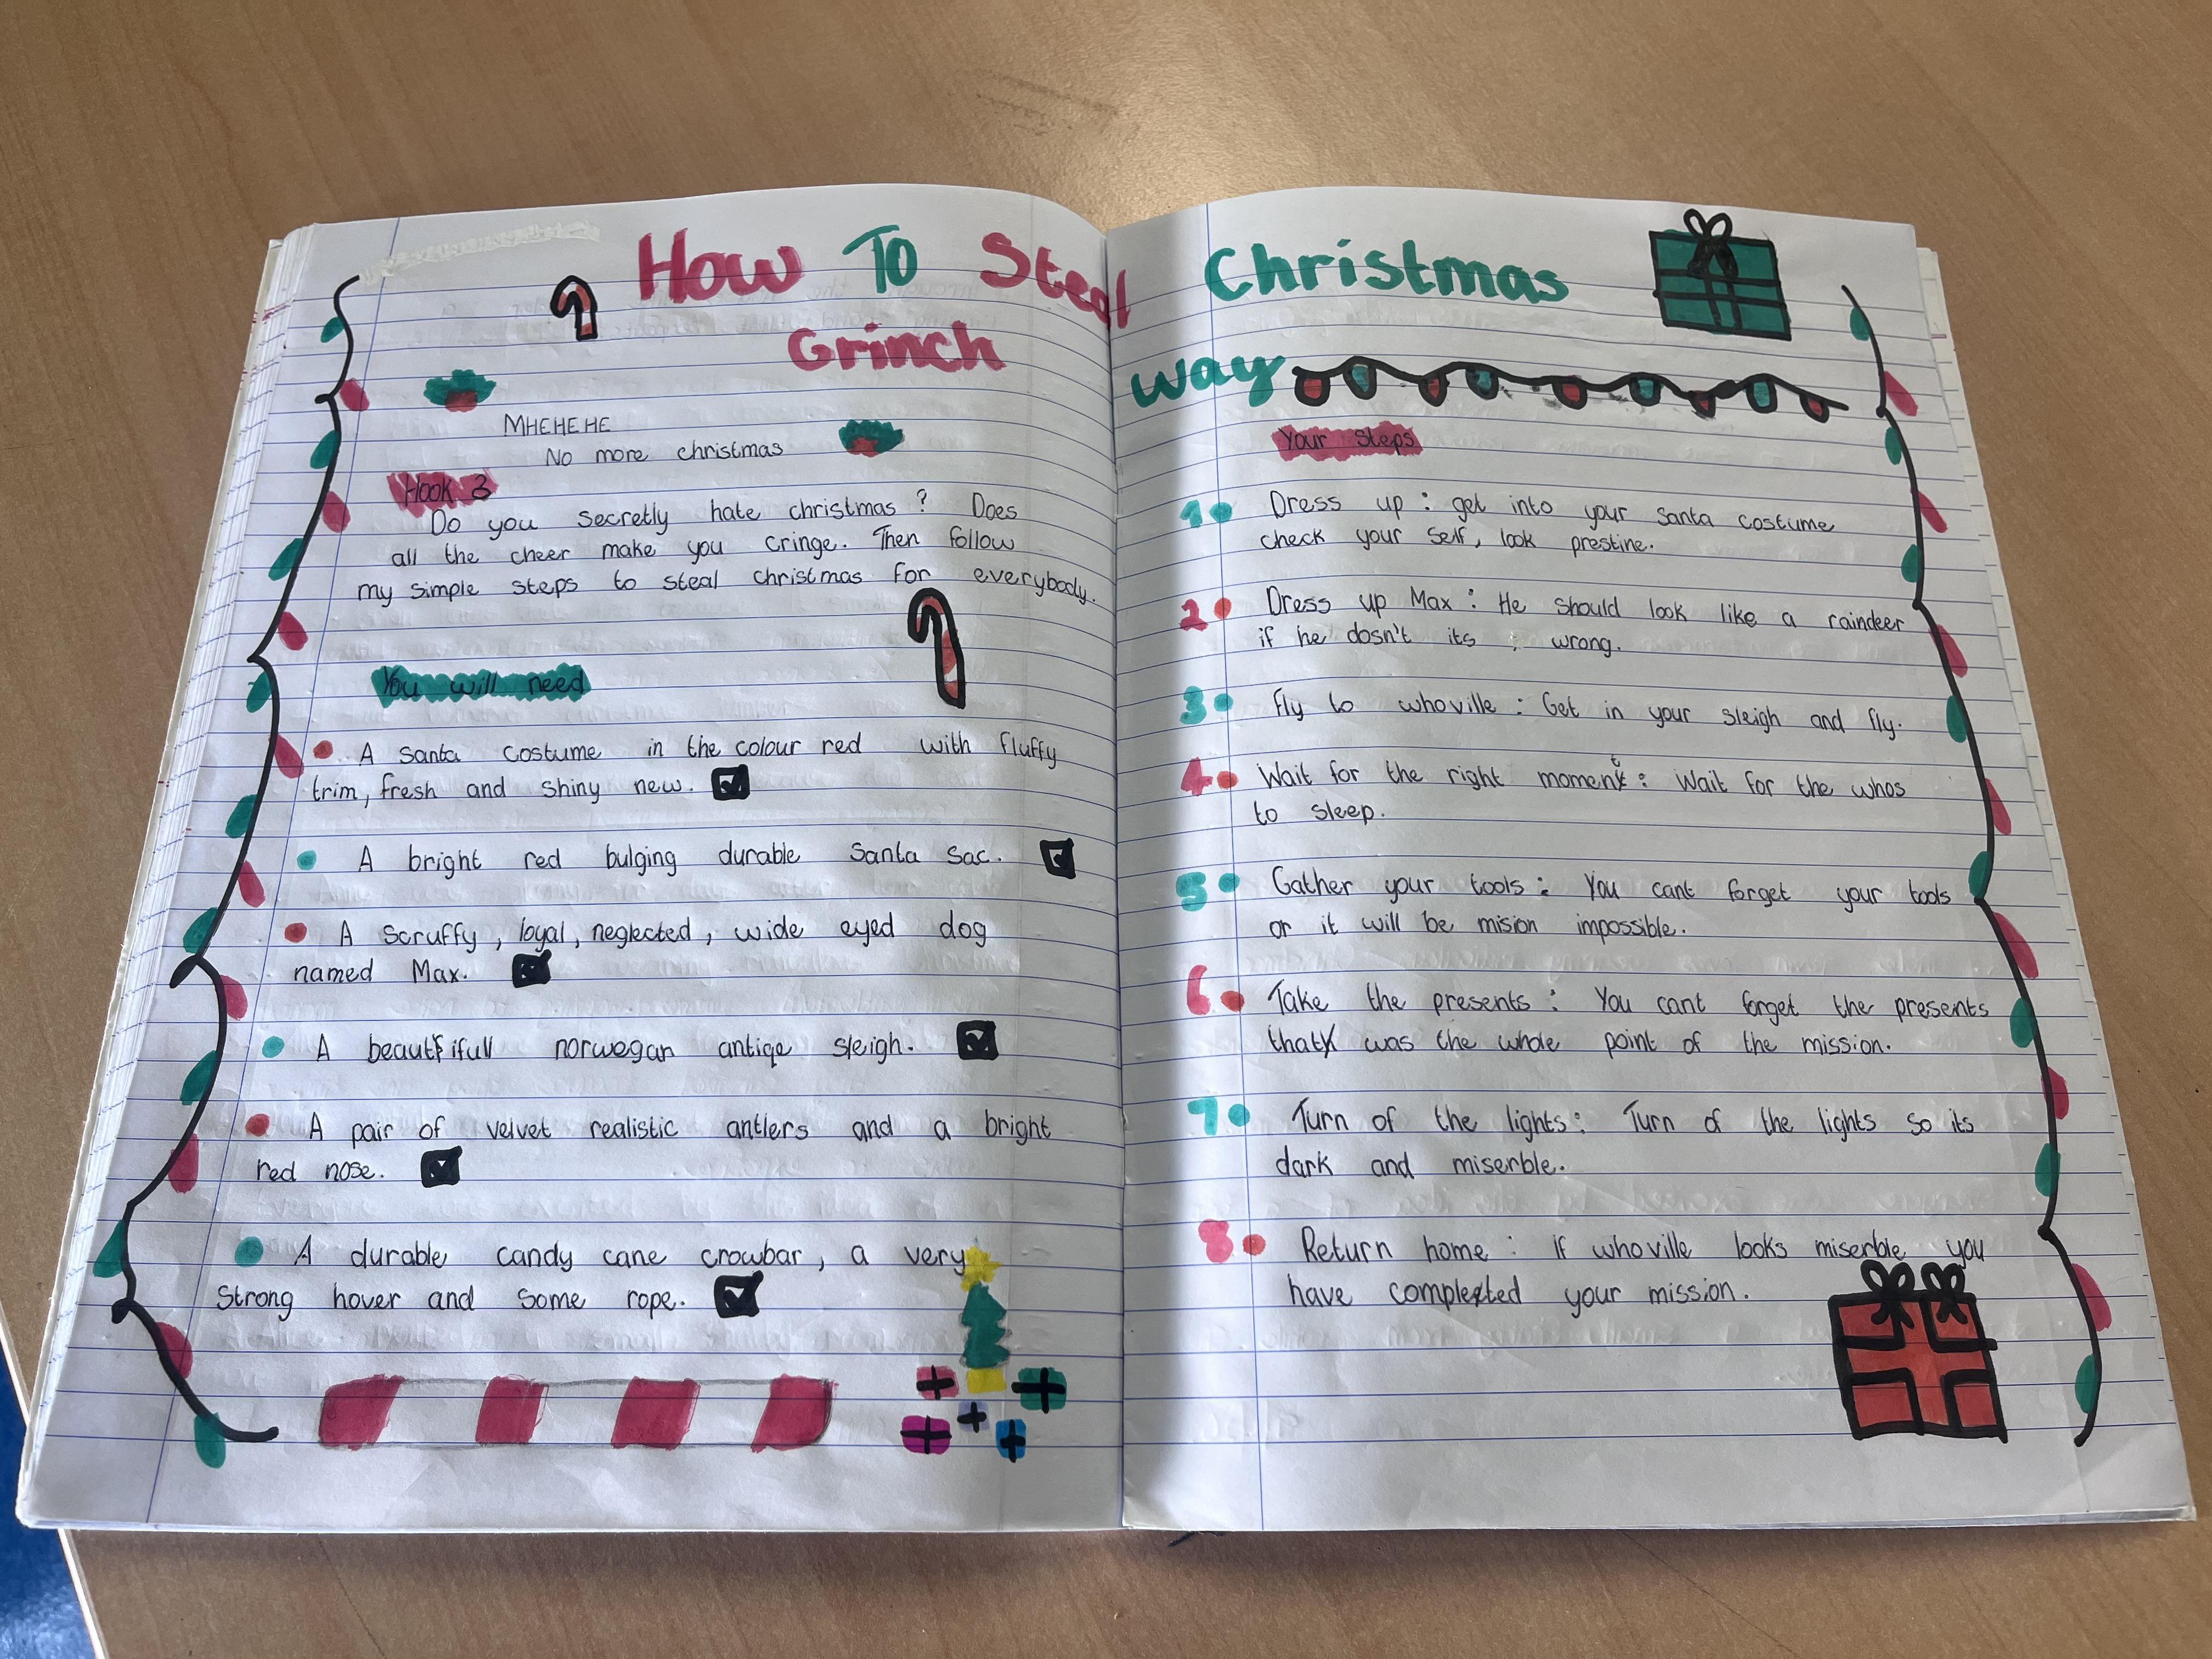 How To Steal Christmas
Grinch way
MHEHEHE
No more christmas
Hook 3
Do you secretly hate christmas ? Does
all the cheer make you cringe. Then follow
my simple steps to steal christmas for everybody.
You will need
A santa costume in the colour red with fluffy
trim, fresh and shiny new.
A bright red bulging durable santa sac.
A scruffy, loyal, neglected, wide eyed dog
named Max.
A beautifull norwegan antiqe sleigh.
A pair of velvet realistic antlers and a bright
red nose.
A durable candy cane crowbar, a very
strong hover and some rope.
Your Steps
1. Dress up : get into your santa costume
check your self, look prestine.
2. Dress up Max : He should look like a raindeer
if he dosn't its wrong.
3. Fly to whoville : Get in your sleigh and fly.
4. Wait for the right moment : Wait for the whos
to sleep.
5. Gather your tools : You cant forget your tools
or it will be mision impossible.
6. Take the presents : You cant forget the presents
that was the whole point of the mission.
7. Turn of the lights : Turn of the lights so its
dark and miserble.
8. Return home : if whoville looks miserble you
have completed your mission.